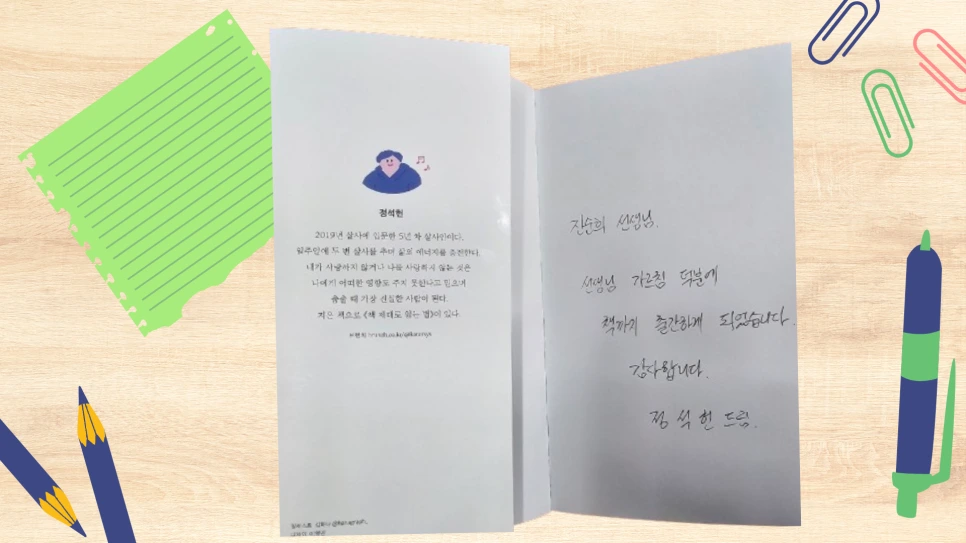 정석헌
2019년 살사에 입문한 5년 차 살사인이다.
일주일에 두 번 살사를 추며 삶의 에너지를 충전한다.
내가 사랑하지 않거나 나를 사랑하지 않는 것은
나에게 어떠한 영향도 주지 못한다고 믿으며
춤출 때 가장 진실한 사람이 된다.
지은 책으로 《책 제대로 읽는 법》이 있다.
진순희 선생님.
선생님 가르침 덕분에
책까지 출간하게 되었습니다.
감사합니다.
정석헌 드림.